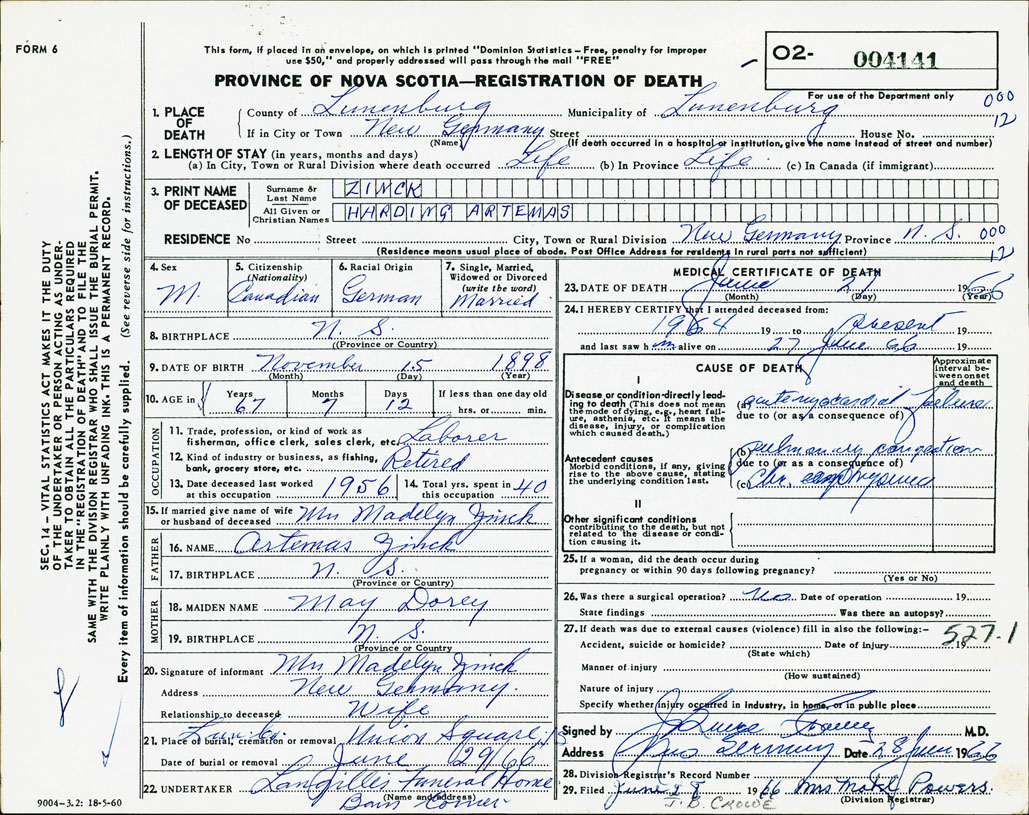 FORM 6
This form, if placed in an envelope, on which is printed "Dominion Statistics – Free, penalty for improper
use $50," and properly addressed will pass through the mail "FREE"
02- 004141
PROVINCE OF NOVA SCOTIA—REGISTRATION OF DEATH
For use of the Department only
000
12
1. PLACE OF DEATH
County of Lunenburg Municipality of Lunenburg
If in City or Town New Germany Street House No.
(Name) (If death occurred in a hospital or institution, give the name instead of street and number)
2. LENGTH OF STAY (in years, months and days)
(a) In City, Town or Rural Division where death occurred Life (b) In Province Life (c) In Canada (if immigrant)
3. PRINT NAME OF DECEASED
Surname or Last Name ZINCK
All Given or Christian Names HARDING ARTEMAS
RESIDENCE No Street City, Town or Rural Division New Germany Province N. S. 000
(Residence means usual place of abode. Post Office Address for residents in rural parts not sufficient) 12
4. Sex M.
5. Citizenship (Nationality) Canadian
6. Racial Origin German
7. Single, Married, Widowed or Divorced (write the word) Married
8. BIRTHPLACE N. S.
(Province or Country)
9. DATE OF BIRTH November 15 1898
(Month) (Day) (Year)
10. AGE in Years 67 Months 7 Days 12 If less than one day old hrs. or min.
OCCUPATION
11. Trade, profession, or kind of work as
fisherman, office clerk, sales clerk, etc. Laborer
12. Kind of industry or business, as fishing,
bank, grocery store, etc. Retired
13. Date deceased last worked at this occupation 1956
14. Total yrs. spent in this occupation 40
15. If married give name of wife
or husband of deceased Mrs Madelyn Zinck
FATHER
16. NAME Artemas Zinck
17. BIRTHPLACE N. S.
(Province or Country)
MOTHER
18. MAIDEN NAME May Dorey
19. BIRTHPLACE N. S.
(Province or Country)
20. Signature of informant Mrs Madelyn Zinck
Address New Germany.
Relationship to deceased Wife
21. Place of burial, cremation or removal Lun. Co. Union Square
Date of burial or removal June 29/66
22. UNDERTAKER Langilles Funeral Home
(Name and address)
Barss Corner
MEDICAL CERTIFICATE OF DEATH
23. DATE OF DEATH June 27 1966
(Month) (Day) (Year)
24. I HEREBY CERTIFY that I attended deceased from:
1964 19 to Present 19
and last saw him alive on 27 June 66 19
CAUSE OF DEATH
Approximate interval between onset and death
I
Disease or condition directly leading to death (This does not mean the mode of dying, e.g., heart failure, asthenia, etc. It means the disease, injury, or complication which caused death.)
(a) acute myocardial failure
due to (or as a consequence of)
Antecedent causes
Morbid conditions, if any, giving rise to the above cause, stating the underlying condition last.
(b) pulmonary congestion
due to (or as a consequence of)
(c) Chr. emphysema
II
Other significant conditions
contributing to the death, but not related to the disease or condition causing it.
25. If a woman, did the death occur during
pregnancy or within 90 days following pregnancy?
(Yes or No)
26. Was there a surgical operation? No. Date of operation 19
State findings Was there an autopsy?
27. If death was due to external causes (violence) fill in also the following:- 527.1
Accident, suicide or homicide? Date of injury 19
(State which)
Manner of injury
(How sustained)
Nature of injury
Specify whether injury occurred in industry, in home, or in public place
Signed by M.D.
Address New Germany Date 28 June 1966
28. Division Registrar's Record Number
29. Filed June 28 1966 Mrs Powers.
(Division Registrar)
J. B. CROWE
SEC. 14 – VITAL STATISTICS ACT MAKES IT THE DUTY
OF THE UNDERTAKER OR PERSON ACTING AS UNDER-
TAKER TO OBTAIN ALL THE PARTICULARS REQUIRED
IN THE "REGISTRATION OF DEATH" AND TO FILE THE
SAME WITH THE DIVISION REGISTRAR WHO SHALL ISSUE THE BURIAL PERMIT.
WRITE PLAINLY WITH UNFADING INK. THIS IS A PERMANENT RECORD.
Every item of information should be carefully supplied. (See reverse side for instructions.)
9004-3.2: 18-5-60